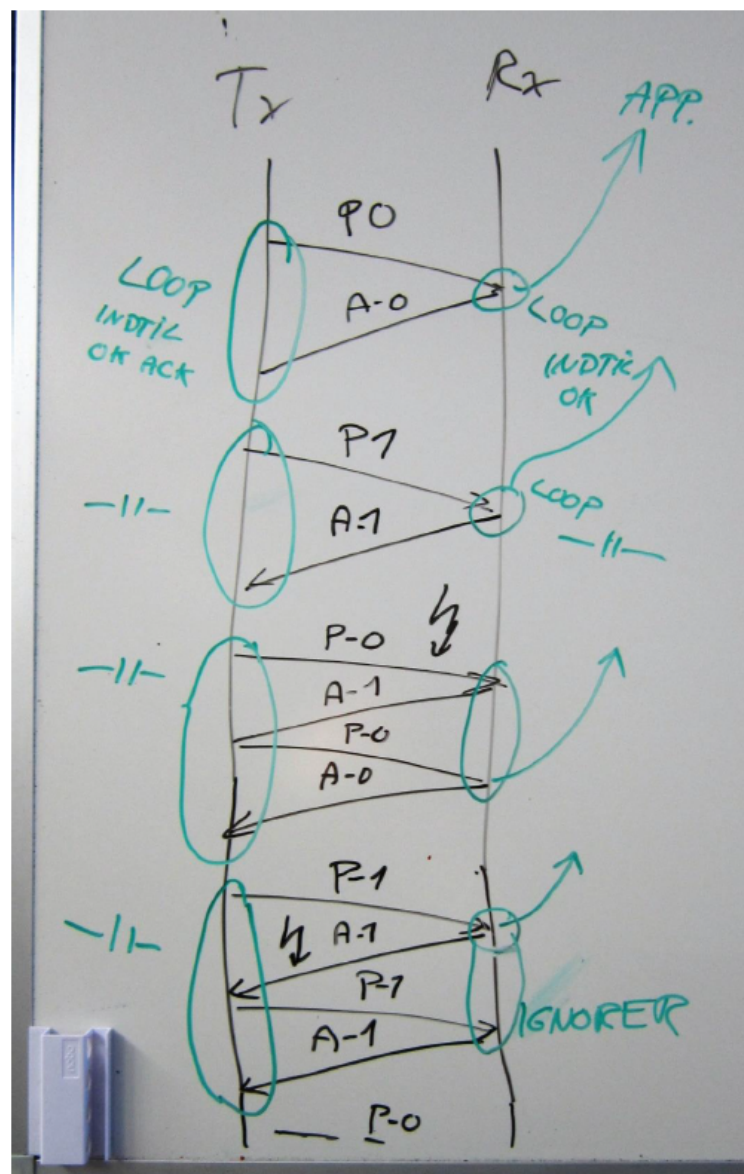 Tx
Rx
APP.
P0
A-0
LOOP
INDTIL
OK ACK
LOOP
INDTIL
OK
P1
A-1
LOOP
—||—
—||—
P-0
A-1
P-0
A-0
—||—
P-1
A-1
P-1
A-1
—||—
IGNORER
P-0